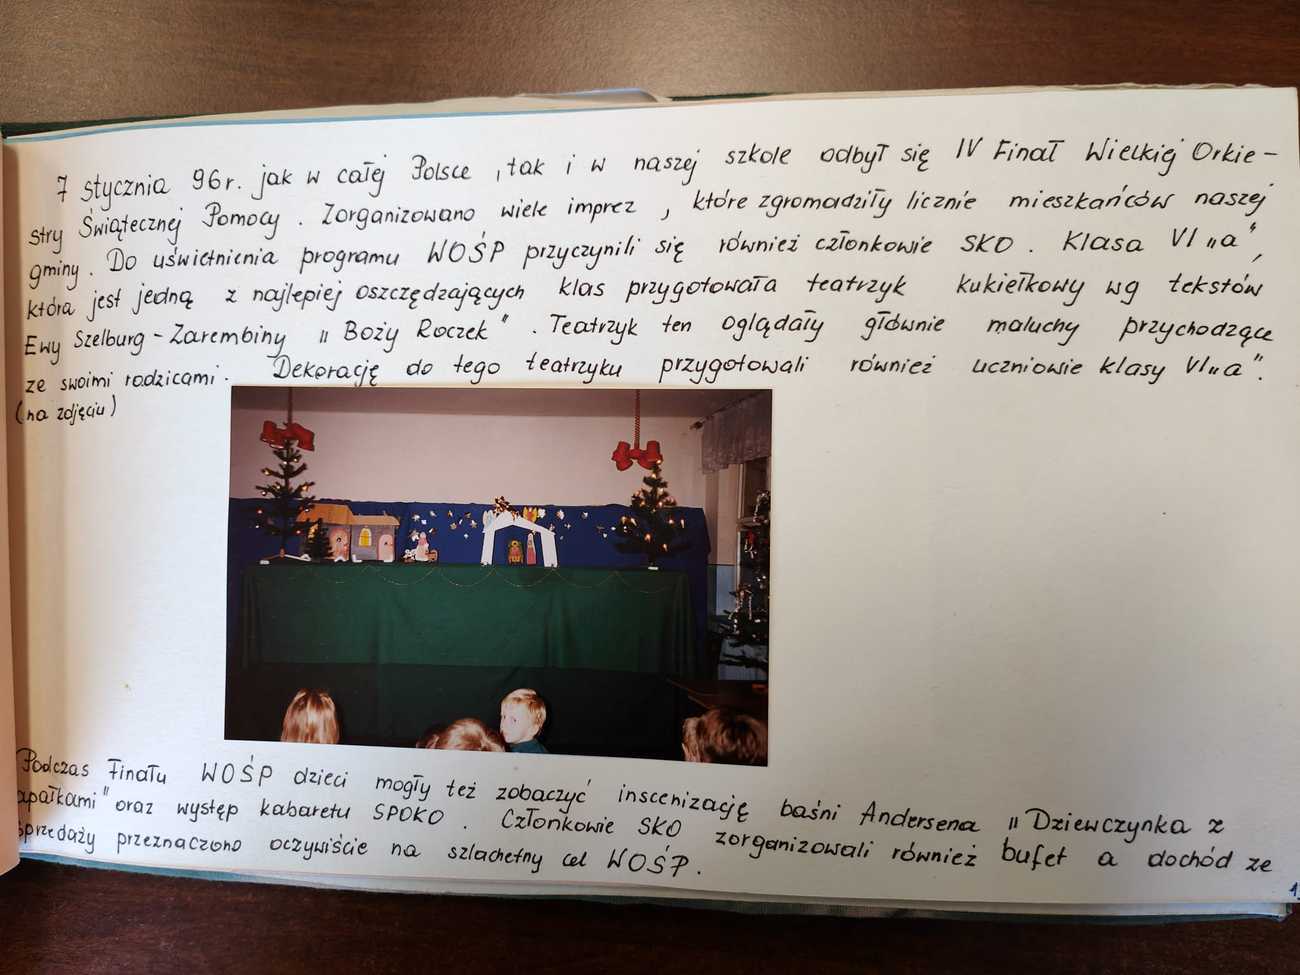 7 stycznia 96r. jak w całej Polsce , tak i w naszej szkole odbył się IV Finał Wielkiej Orkie-
stry Świątecznej Pomocy . Zorganizowano wiele imprez , które zgromadziły licznie mieszkańców naszej
gminy . Do uświetnienia programu WOŚP przyczynili się również członkowie SKO . Klasa VI „a",
która jest jedną z najlepiej oszczędzających klas przygotowała teatrzyk kukiełkowy wg tekstów
Ewy Szelburg-Zarembiny „ Boży Roczek" . Teatrzyk ten oglądały głównie maluchy przychodzące
ze swoimi rodzicami . Dekorację do tego teatrzyku przygotowali również uczniowie klasy VI „a".
(na zdjęciu)
Podczas Finału WOŚP dzieci mogły też zobaczyć inscenizację baśni Andersena „Dziewczynka z
zapałkami" oraz występ kabaretu SPOKO . Członkowie SKO zorganizowali również bufet a dochód ze
sprzedaży przeznaczono oczywiście na szlachetny cel WOŚP .